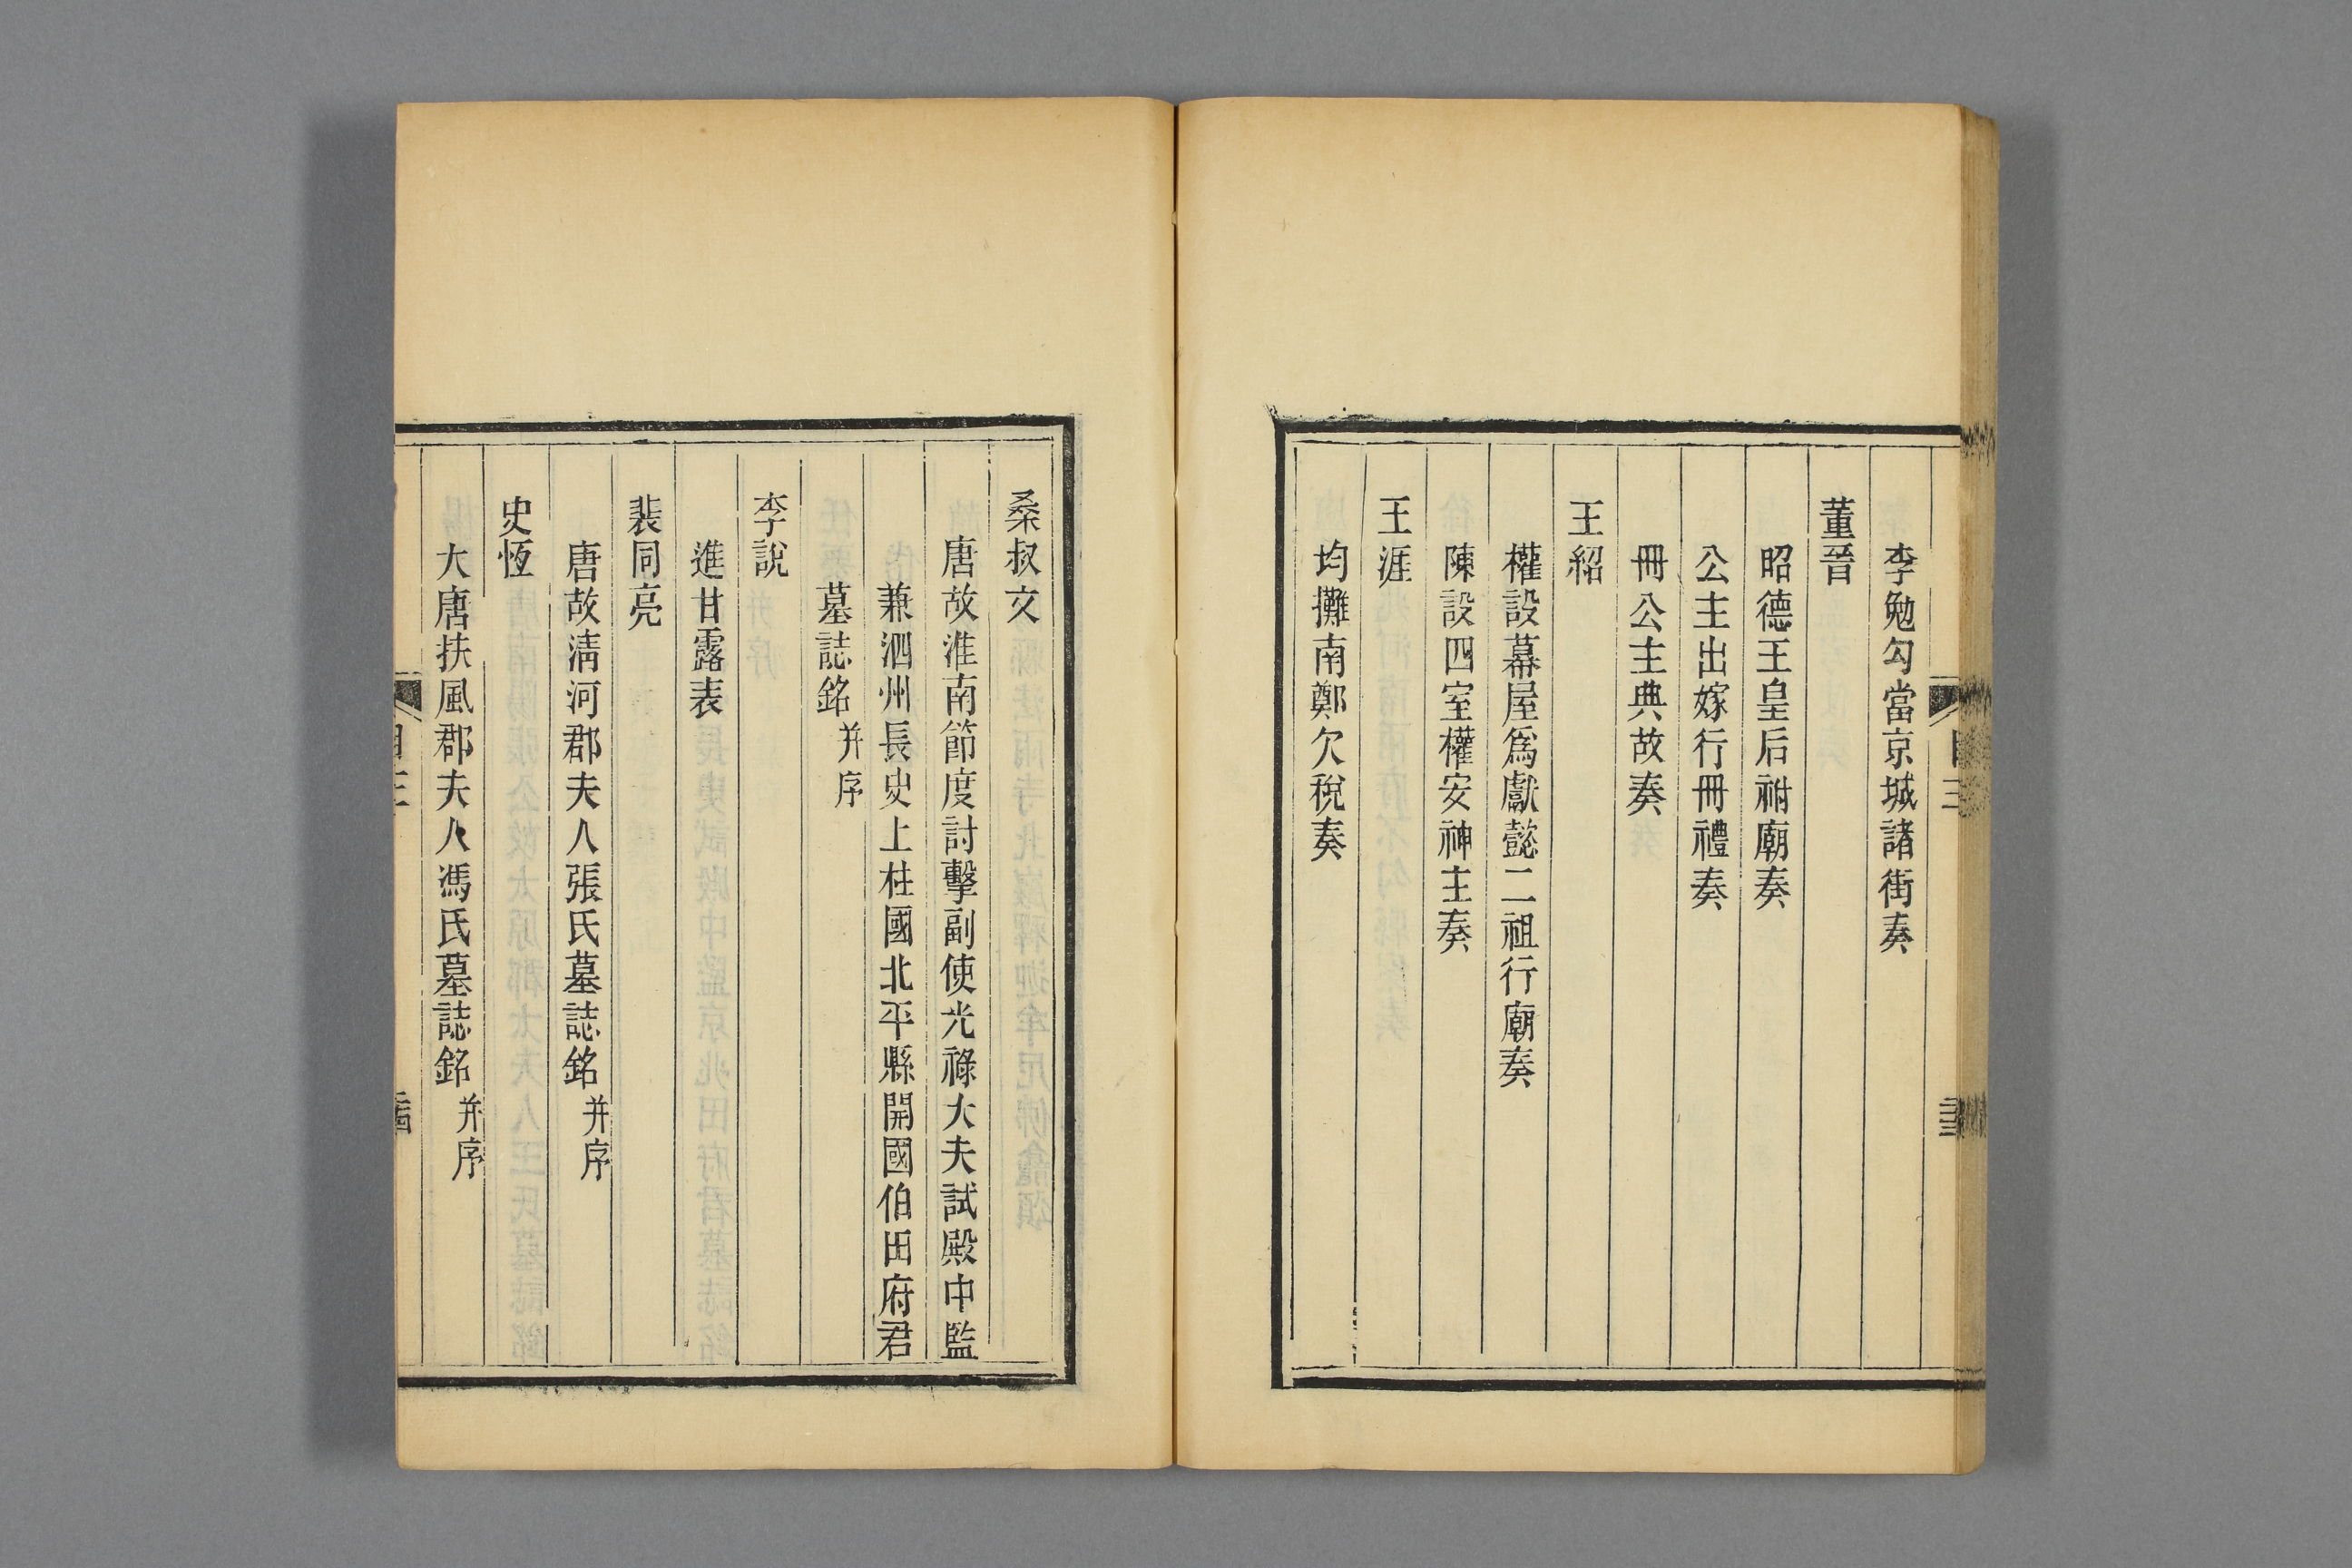 李勉勾當京城諸街奏
董晉
昭德王皇后祔廟奏
公主出嫁行冊禮奏
冊公主典故奏
王紹
權設幕屋爲獻懿二祖行廟奏
陳設四室權安神主奏
王涯
均攤南鄭欠稅奏
桑叔文
唐故淮南節度討擊副使光祿大夫試殿中監
兼泗州長史上柱國北平縣開國伯田府君
墓誌銘并序
李說
進甘露表
裴同亮
唐故淸河郡夫人張氏墓誌銘并序
史恆
大唐扶風郡夫人馮氏墓誌銘并序